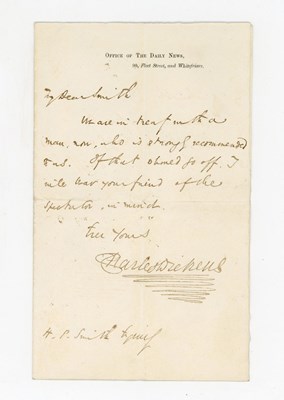 OFFICE OF THE DAILY NEWS,
90, Fleet Street, and Whitefriars.
My Dear Smith
We are in treaty with a
man, now, who is strongly recommended
to us. If that should go off, I
will bear your friend of the
Spectator, in mind.
Ever Yours
Charles Dickens
H. P. Smith Esquire